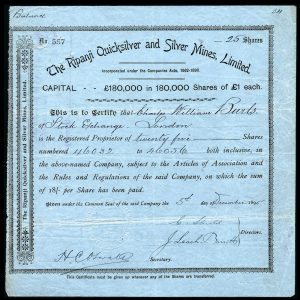 No. 557 25 Shares
The Ripanji Quicksilver and Silver Mines, Limited.
Incorporated under the Companies Acts, 1862-1890.
CAPITAL £180,000 in 180,000 Shares of £1 each.
This is to Certify that Charles William Burls
of Stock Exchange London
is the Registered Proprietor of twenty five Shares
numbered 46032 to 46056 both inclusive, in
the above-named Company, subject to the Articles of Association and
the Rules and Regulations of the said Company, on which the sum
of 18/- per Share has been paid.
Given under the Common Seal of the said Company the 5th day of December
Directors.
Secretary
This Certificate must be given up whenever any of the Shares are transferred.
The Ripanji Quicksilver and Silver Mines, Limited.